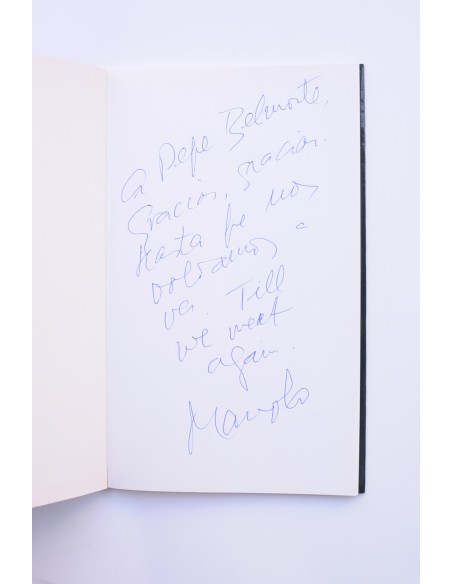 A Pepe Belmonte,
Gracias, gracias.
Hasta que nos
volvamos a
ver. Till
we meet
again.
Manolo